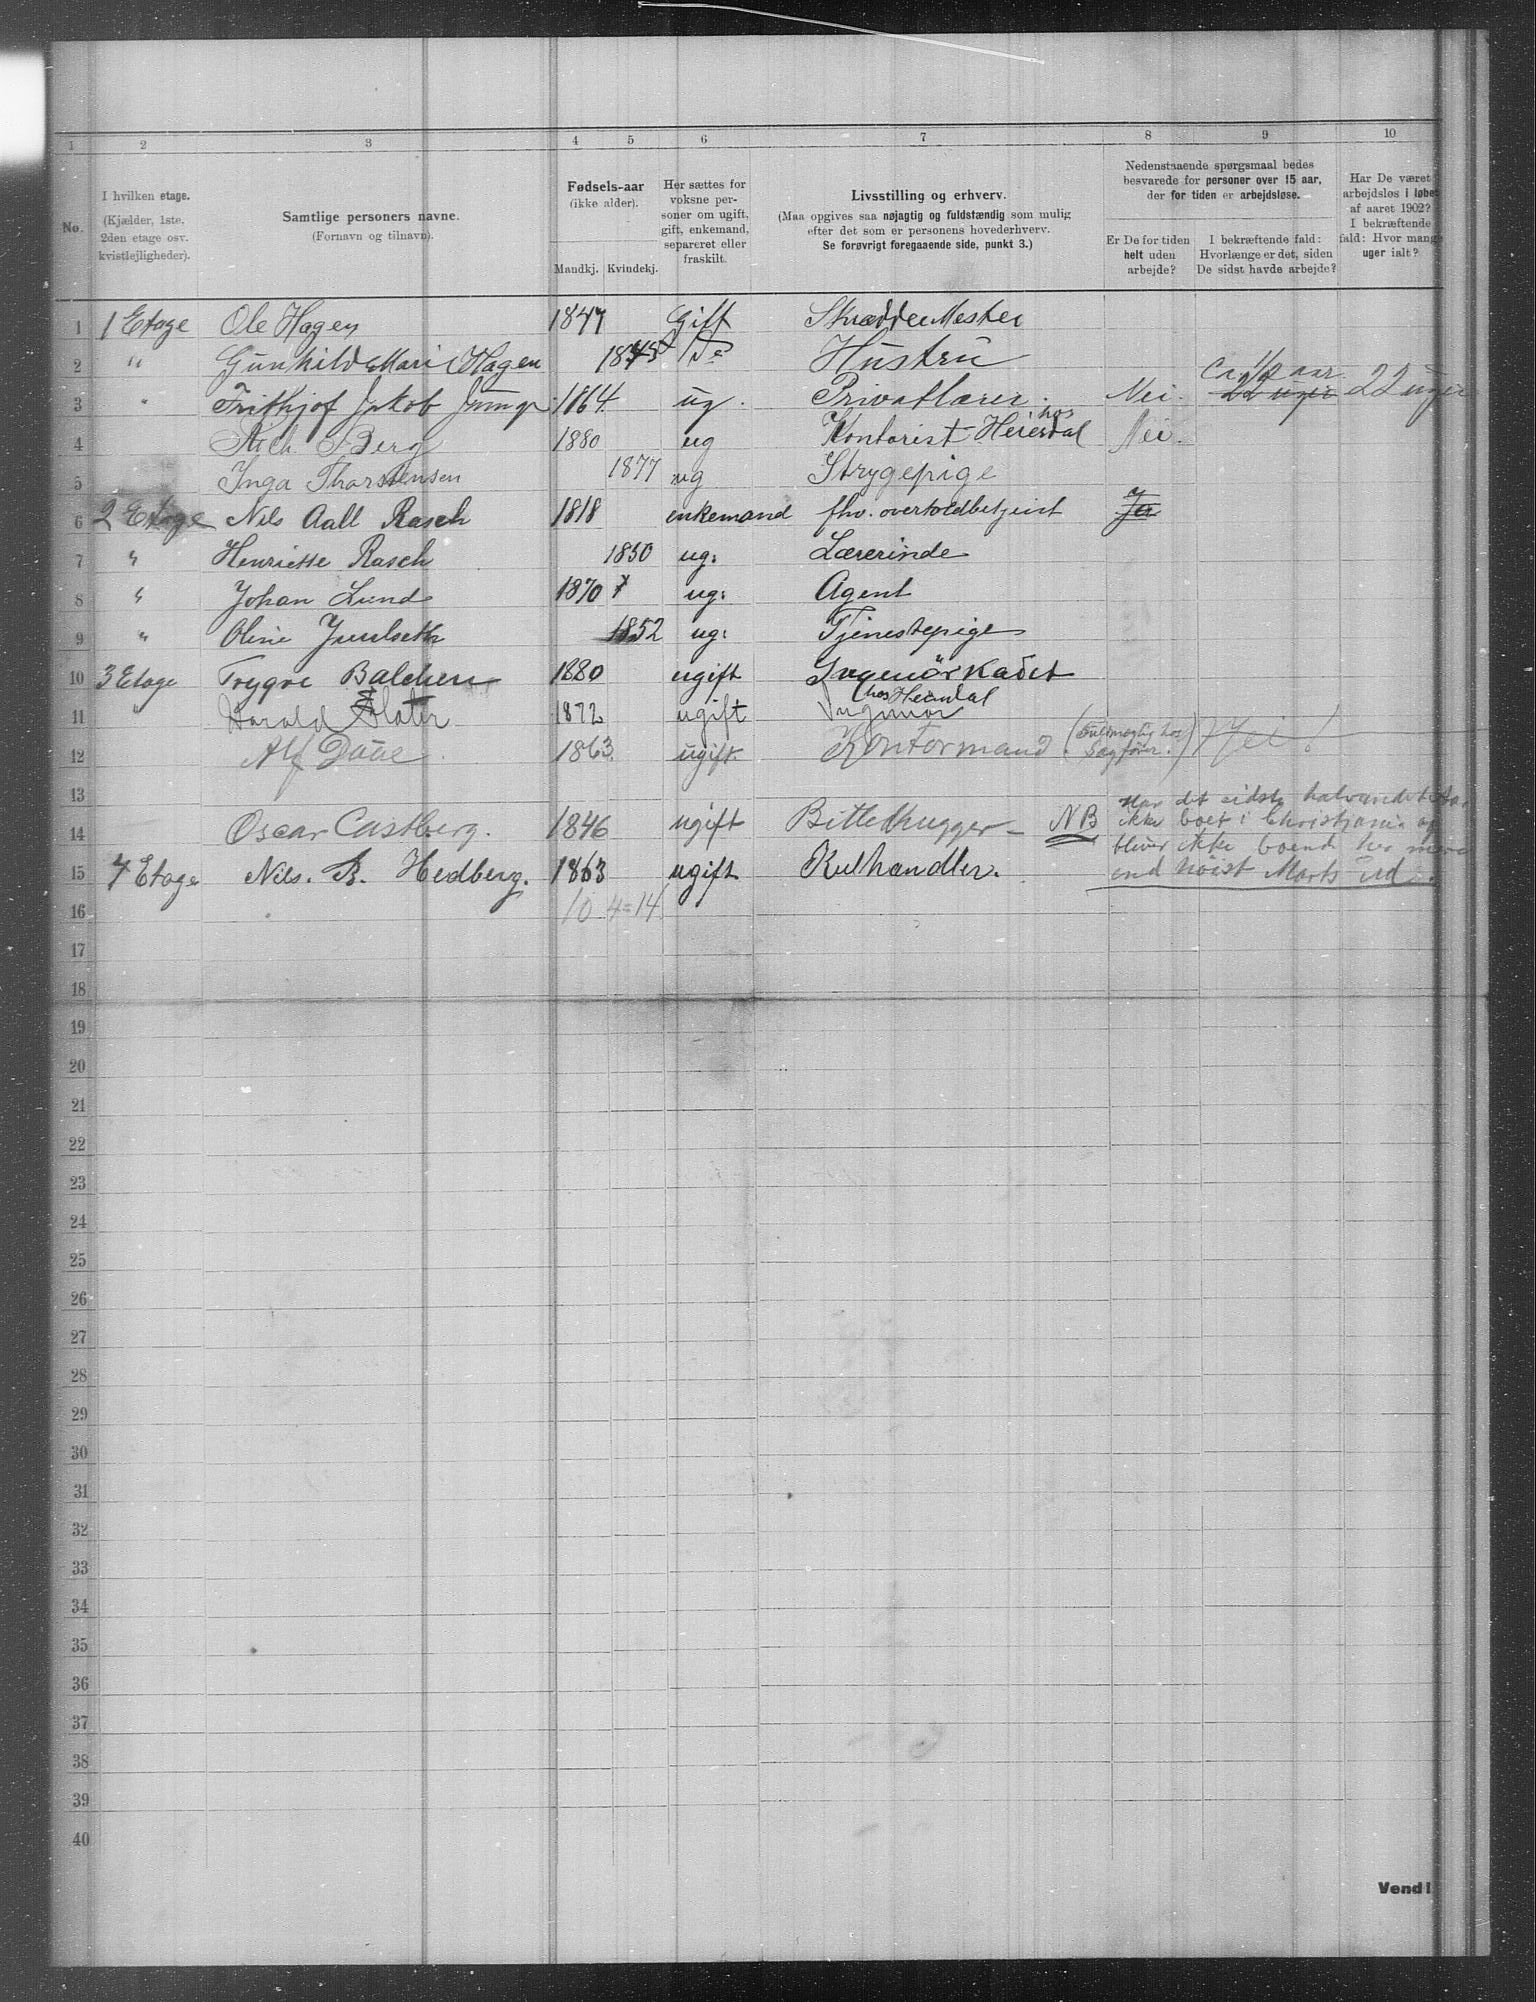 1 2 3 4 5 6 7 8 9 10
No.
I hvilken etage.
(Kjælder, 1ste,
2den etage osv.
kvistlejligheder).
Samtlige personers navne.
(Fornavn og tilnavn).
Fødsels-aar
(ikke alder).
Mandkj. Kvindekj.
Her sættes for
voksne per-
soner om ugift,
gift, enkemand,
separeret eller
fraskilt.
Livsstilling og erhverv.
(Maa opgives saa nøjagtig og fuldstændig som mulig
efter det som er personens hovederhverv.
Se forøvrigt foregaaende side, punkt 3.)
Nedenstaaende spørgsmaal bedes
besvarede for personer over 15 aar,
der for tiden er arbejdsløse.
Er De for tiden
helt uden
arbejde?
I bekræftende fald:
Hvorlænge er det, siden
De sidst havde arbejde?
Har De været
arbejdsløs i løbet
af aaret 1902?
I bekræftende
fald: Hvor mange
uger ialt?
1 1 Etage Ole Hagen 1847 Gift SkrædderMester
2 " Gunhild Mari Hagen 1845 Do Hustru
3 " Frithjof Jakob 1864 ug. Privatlærer. Nei. Ca 1/2 aar 22 uger 22 uger
4 Berg 1880 ug Kontorist hos Heierdal Nei.
5 Inga Thorstensen 1877 ug Strygepige
6 2 Etage Nils Aall Rasch 1818 enkemand fhv. overtoldbetjent Ja
7 " Henriette Rasch 1850 ug: Lærerinde
8 " Johan Lund 1870 ug: Agent
9 " Oline Juulseth 1852 ug: Tjenestepige
10 3 Etage Trygve Balchen 1880 ugift Ingeniørkadet
11 " Harald Slater 1872 ugift Ingeniør
12 Alf Daae 1863. ugift. Kontormand. (Fuldmægtig hos Sagfører.) Nei!
13
14 Oscar Castberg. 1846 ugift Billedhugger NB Har det sidste halvandet Aar
ikke boet i Christiania og
bliver ikke boende her mere
end høist Marts ud.
15 7 Etage Nils. B. Hedberg. 1863 ugift Kulhandler.
16 10 4=14
17
18
19
20
21
22
23
24
25
26
27
28
29
30
31
32
33
34
35
36
37
38
39
40
Vend!